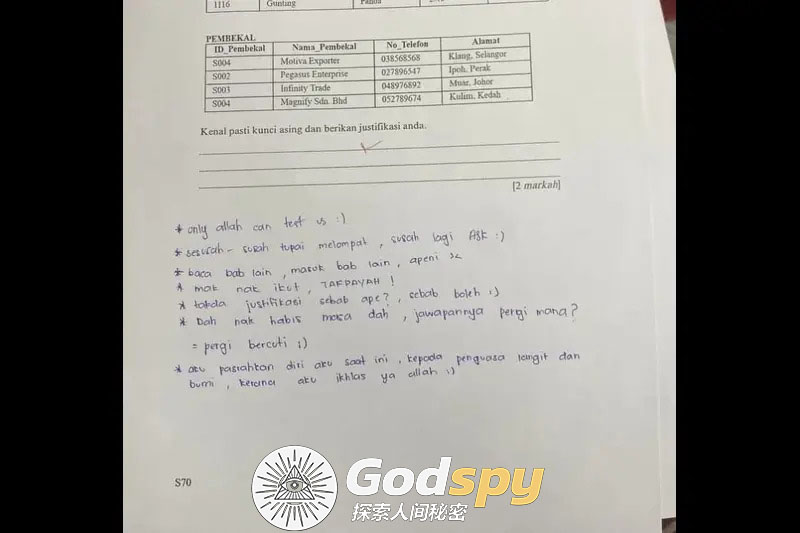 1116 Gunting Panda
PEMBEKAL
ID_Pembekal Nama_Pembekal No_Telefon Alamat
S004 Motiva Exporter 038568568 Klang, Selangor
S002 Pegasus Enterprise 027896547 Ipoh, Perak
S003 Infinity Trade 048976892 Muar, Johor
S004 Magnify Sdn. Bhd 052789674 Kulim, Kedah
Kenal pasti kunci asing dan berikan justifikasi anda.
[2 markah]
* only allah can test us :)
* sesusah - susah tupai melompat, susah lagi ASK :)
* baca bab lain, masuk bab lain, apeni :<
* mak nak ikut, TAKPAYAH !
* takda justifikasi sebab ape?, sebab boleh :)
* Dah nak habis masa dah, jawapannya pergi mana?
= pergi bercuti :)
* aku pasrahkan diri aku saat ini, kepada penguasa langit dan
bumi, kerana aku ikhlas ya allah :)
S70
Godspy
探索人间秘密